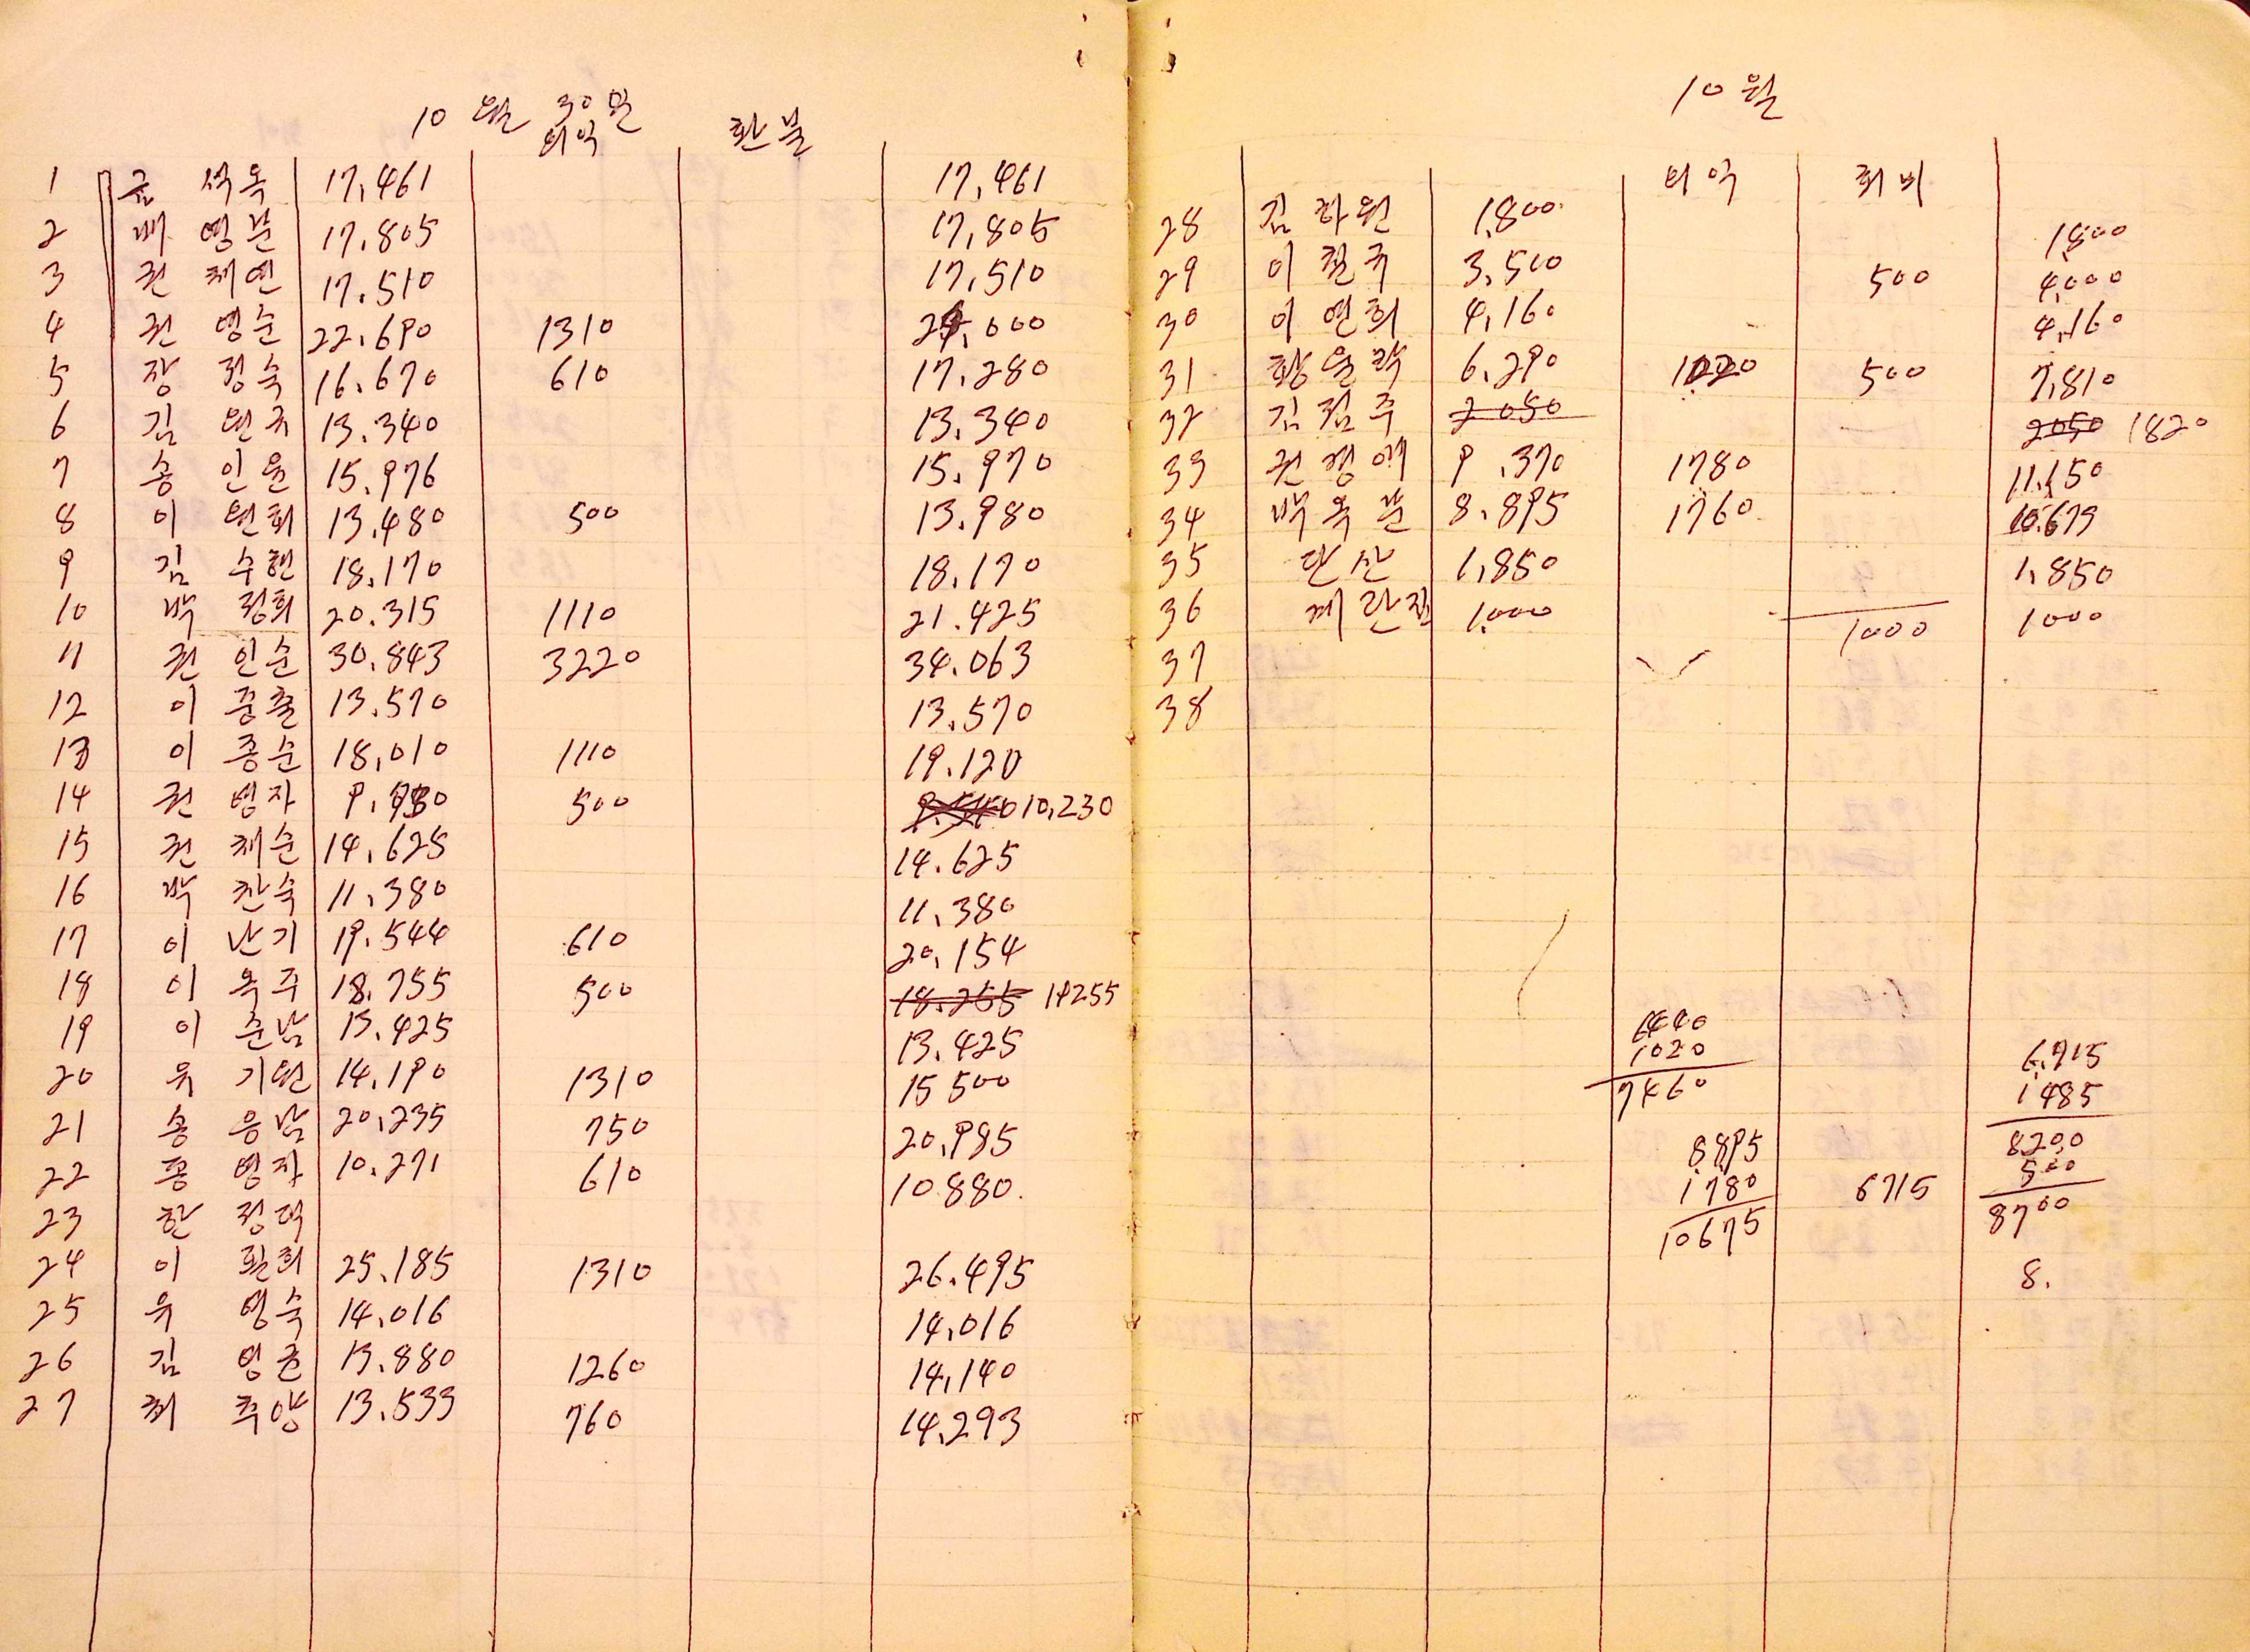 10 월 30일
이익 환불
1 금 석옥 17,461 17,461
2 배 영분 17,805 17,805
3 권 체연 17,510 17,510
4 권 영순 22,690 1310 24,000
5 장 정숙 16,670 610 17,280
6 김 원규 13,340 13,340
7 송 인윤 15,976 15,970
8 이 원희 13,480 500 13,980
9 김 수현 18,170 18,170
10 박 정희 20,315 1110 21,425
11 권 인순 30,843 3220 34,063
12 이 종출 13,570 13,570
13 이 종순 18,010 1110 19,120
14 권 영자 500 10,230
15 권 채순 14,625 14,625
16 박 찬숙 11,380 11,380
17 이 난기 19,544 610 20,154
18 이 옥주 18,755 500 18,255 19255
19 이 순남 13,425 13,425
20 유 기원 14,190 1310 15500
21 송 응남 20,235 750 20,985
22 영자 10,271 610 10880
23 한 정덕
24 이 필희 25,185 1310 26,495
25 유 영숙 14,016 14,016
26 김 영균 13,880 1260 14,140
27 최 축양 13,533 760 14,293
10월
이익 회비
28 김 하원 1,800 1,800
29 이 필규 3,500 500 4,000
30 이 연희 4,160 4,160
31 황 윤락 6,290 1020 500 7,810
32 김 점주 2050 2050 1820
33 권 경애 9,370 1780 11,150
34 박 옥분 8,895 1760
35 단산 1,850 1,850
36 1,000 1000 1000
37
38
6440
1020
7460
8895
1780
10675
6715
6,715
1485
8200
500
8700
8.